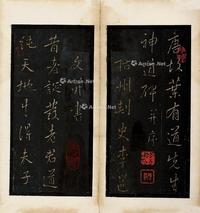 唐故葉有道先生
神道碑并序
括州刺史李邕
文并書
昔者誕發老君道
純天地生得夫子